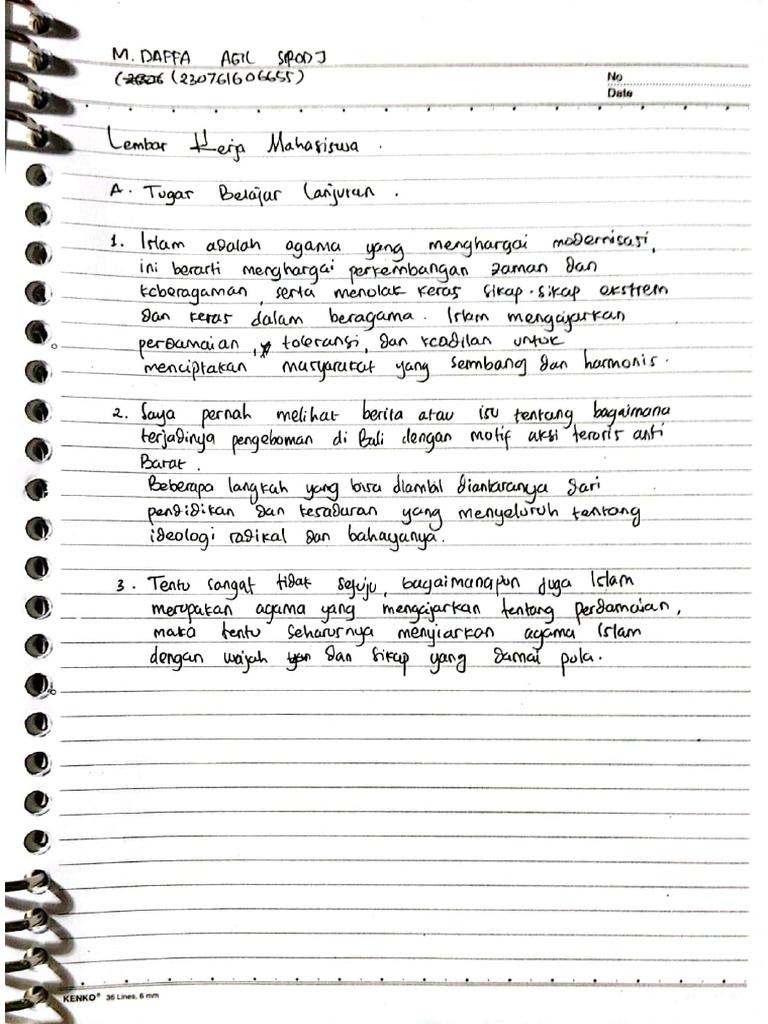 M. DAFFA AGIL SIRODJ
(230761606655)
No
Date
Lembar Kerja Mahasiswa.
A. Tugas Belajar Lanjutan.
1. Islam adalah agama yang menghargai modernisasi,
ini berarti menghargai perkembangan zaman dan
keberagaman, serta menolak keras sikap-sikap ekstrem
dan keras dalam beragama. Islam mengajarkan
perdamaian, toleransi, dan keadilan untuk
menciptakan masyarakat yang seimbang dan harmonis.
2. Saya pernah melihat berita atau isu tentang bagaimana
terjadinya pengeboman di Bali dengan motif aksi teroris anti
Barat.
Beberapa langkah yang bisa diambil diantaranya dari
pendidikan dan kesadaran yang menyeluruh tentang
ideologi radikal dan bahayanya.
3. Tentu sangat tidak setuju, bagaimanapun juga Islam
merupakan agama yang mengajarkan tentang perdamaian,
maka tentu seharusnya menyiarkan agama Islam
dengan wajah dan sikap yang damai pula.
KENKO® 36 Lines, 6 mm